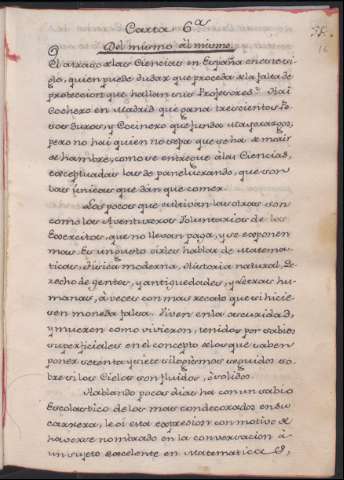 Carta 6.ª
Del mismo al mismo.
16
El atraso de las Ciencias en España en este si-
glo, quien puede dudar que proceda de la falta de
proteccion que hallan sus Profesores? Hai
Cochero en Madrid que gana trescientos Pe-
sos duros, y Cocinero que funda Mayorazgos,
pero no hai quien no sepa que se ha de morir
de hambre, como se entregue à las Ciencias,
exceptuadas las de pane lucrando, que son
las unicas que dàn que comer.
Los pocos que cultivan las otras son
como los Aventureros Voluntarios de los
Exercitos, que no llevan paga, y se exponen
mas. Es un gusto oirles hablar de Matema-
ticas, Fisica moderna, Historia natural, De-
recho de gentes, y antiguedades, y Letras hu-
manas, à veces con mas recato que si hicie-
sen moneda falsa. Viven en la obscuridad,
y mueren como vivieron, tenidos por sabios
superficiales en el concepto de los que saben
poner setenta y siete silogismos seguidos so-
bre si los Cielos son fluidos, ò solidos.
Hablando pocos dias ha con un sabio
Escolastico de los mas condecorados en su
carrera, le oi esta expresion con motivo de
haverse nombrado en la conversacion à
un sujeto excelente en Matematica S;